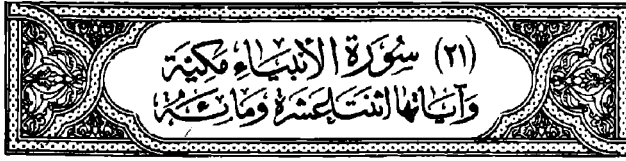 (٢١) سُورَةُ الْأَنْبِيَاءِ مَكِّيَّة
وَآيَاتُهَا اثْنَتَاعَشَرَةَ وَمَائَةُ